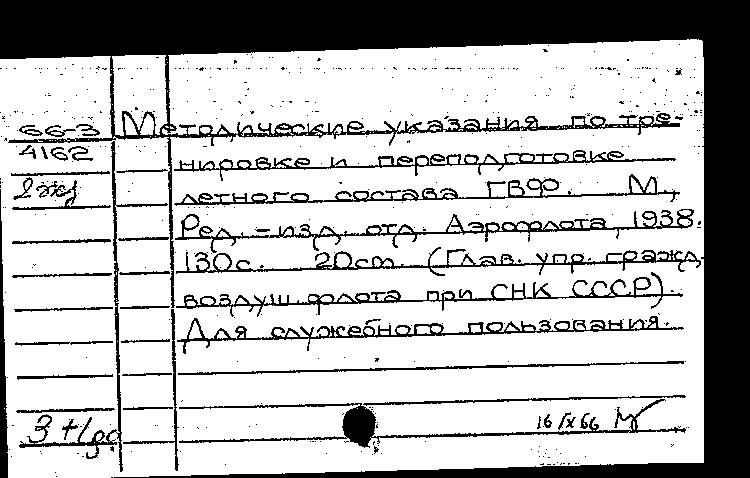 66-3 Методические указания по тре-
4162 нировке и переподготовке
2 экз летного состава ГВФ. М.,
Ред.-изд. отд. Аэрофлота, 1938.
130с. 20см. (Глав. упр. гражд.
воздуш. флота при СНК СССР).
Для служебного пользования.
3+1
16/IX 66